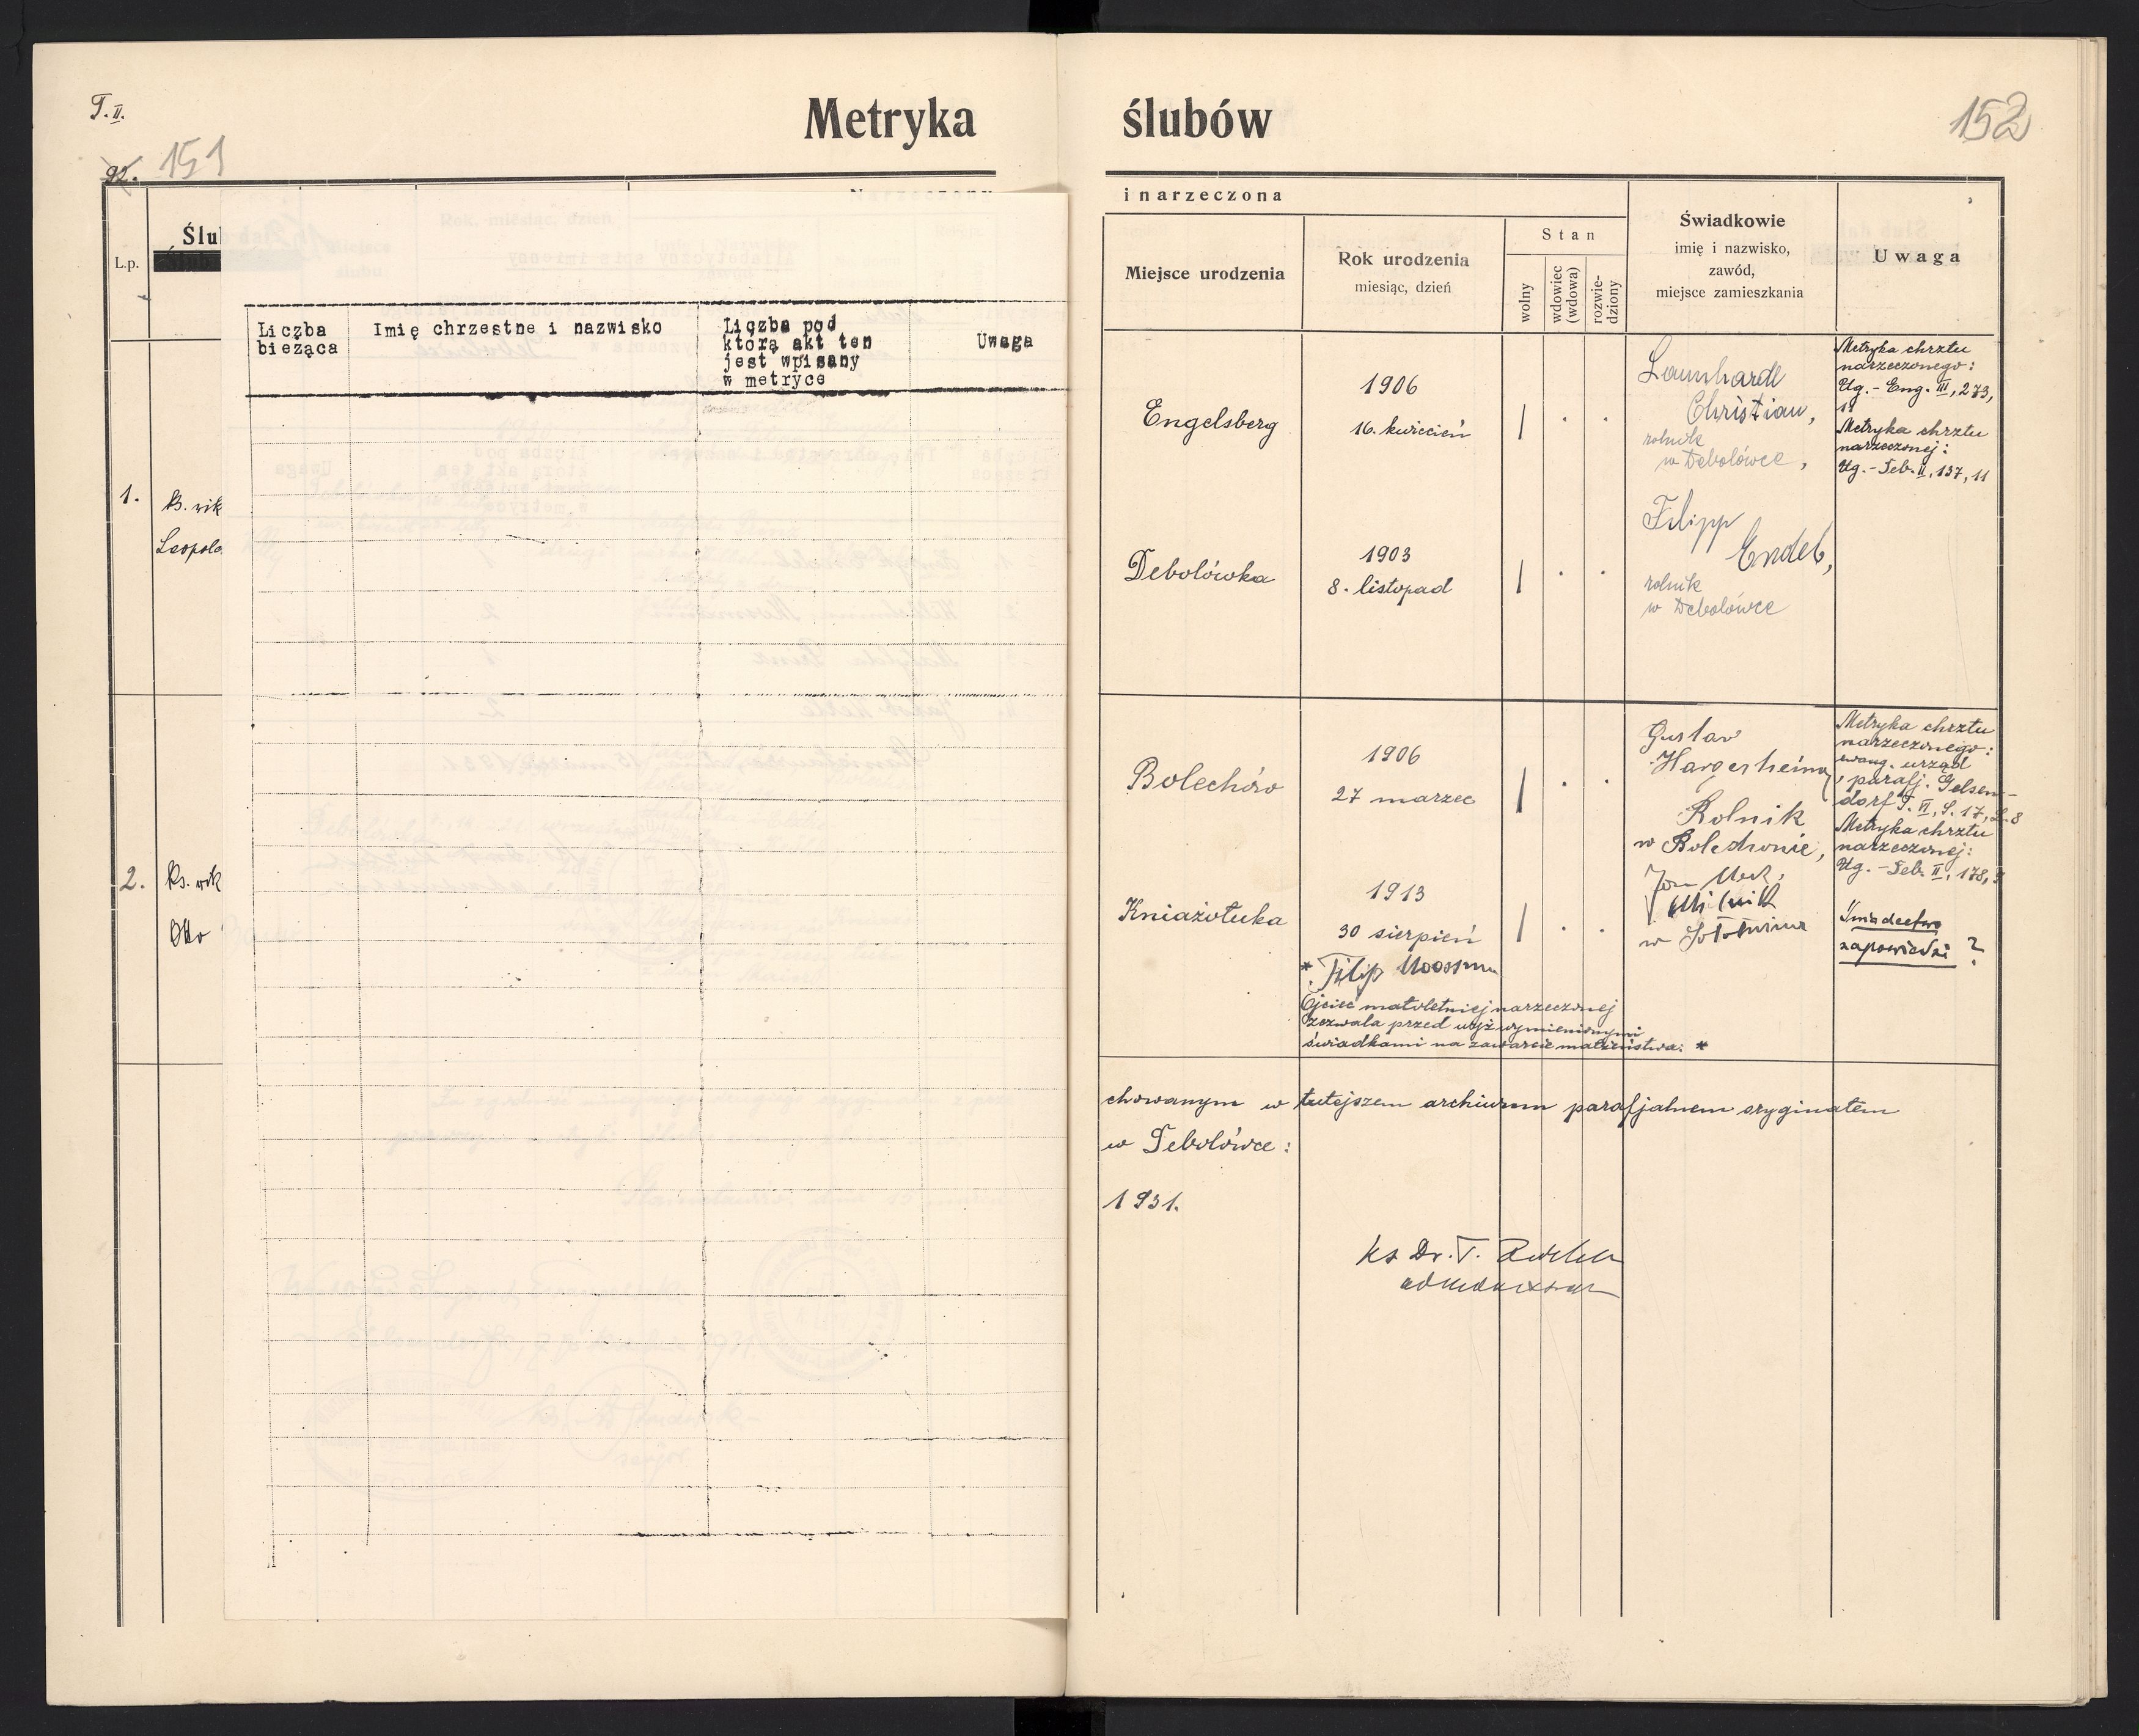 T. II.
92. 151
Metryka ślubów
152
L.p.
Ślub
Liczba bieżąca
Imię chrzestne i nazwisko
Liczba pod
którą akt ten
jest wpisany
w metryce
Uwaga
1.
ks. wik
Leopold
2.
ks. wik
Otto
i narzeczona
Miejsce urodzenia
Rok urodzenia
miesiąc, dzień
Stan
wolny
wdowiec
(wdowa)
rozwie-
dziony
Świadkowie
imię i nazwisko,
zawód,
miejsce zamieszkania
Uwaga
Engelsberg
1906
16. kwiecień
Debolówka
1903
8. listopad
Launhardt
Christian,
rolnik
w Debolówce,
Filipp
Endel,
rolnik
w Debolówce
Metryka chrztu
narzeczonego:
Ug.- Eng. III, 273,
11
Metryka chrztu
narzeczonej:
Ug.- Deb. II, 137, 11
Bolechów
1906
27 marzec
Kniażołuka
1913
30 sierpień
* Filip
Ojciec małoletniej narzeczonej
zezwala przed wyż wymienionymi
świadkami na zawarcie małżeństwa: *
Gustav
Hargesheimer,
Rolnik
w Bolechowie,
w
Metryka chrztu
narzeczonego:
ewang. urząd
parafj. Gelsen-
dorf T. VI, S. 17, L. 8
Metryka chrztu
narzeczonej:
Ug.- Deb. II, 178,
Świadectwo
zapowiedzi ?
chowanym w tutejszem archiwum parafjalnem oryginałem
w Debolówce:
1931.
ks Dr. T.